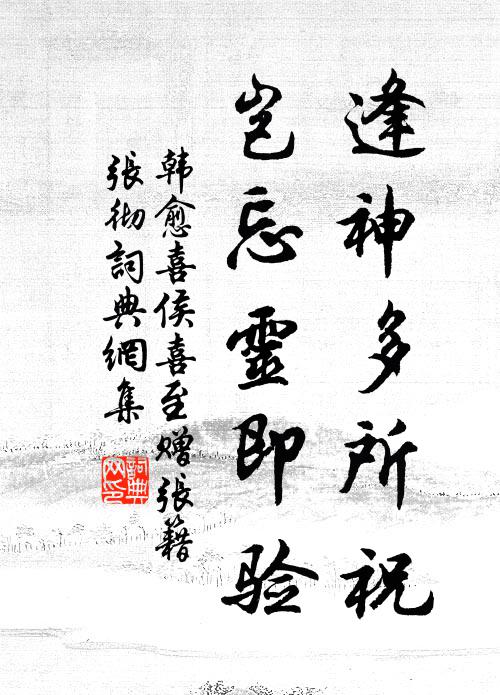 逢神多所祝
岂忘靈即验
韩愈喜侯喜至赠張籍
張彻詞典網集
詞典
网印